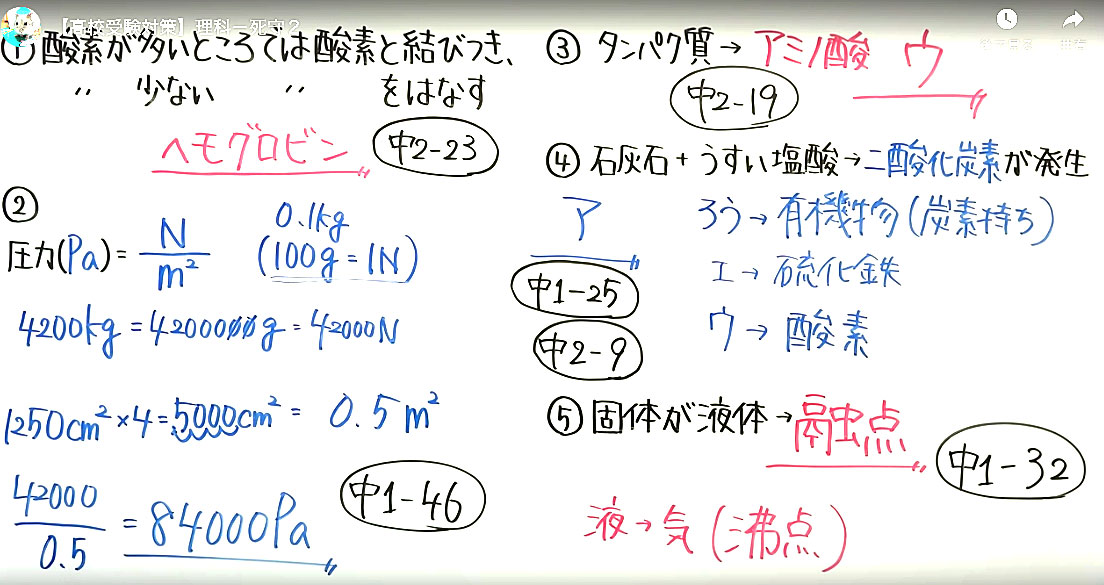 【高校受験対策】理科－死守２
① 酸素が多いところでは酸素と結びつき、
〃 少ない 〃 をはなす
ヘモグロビン
中2-23
②
圧力(Pa) = N/m²
0.1kg
(100g = 1N)
4200kg = 4200000g = 42000N
1250cm² × 4 = 5000cm² = 0.5m²
42000/0.5 = 84000Pa
中1-46
③ タンパク質→アミノ酸 ウ
中2-19
④ 石灰石+うすい塩酸→二酸化炭素が発生
ア
ろう→有機物(炭素持ち)
エ→硫化鉄
ウ→酸素
中1-25
中2-9
⑤ 固体が液体→融点
中1-32
液→気(沸点)